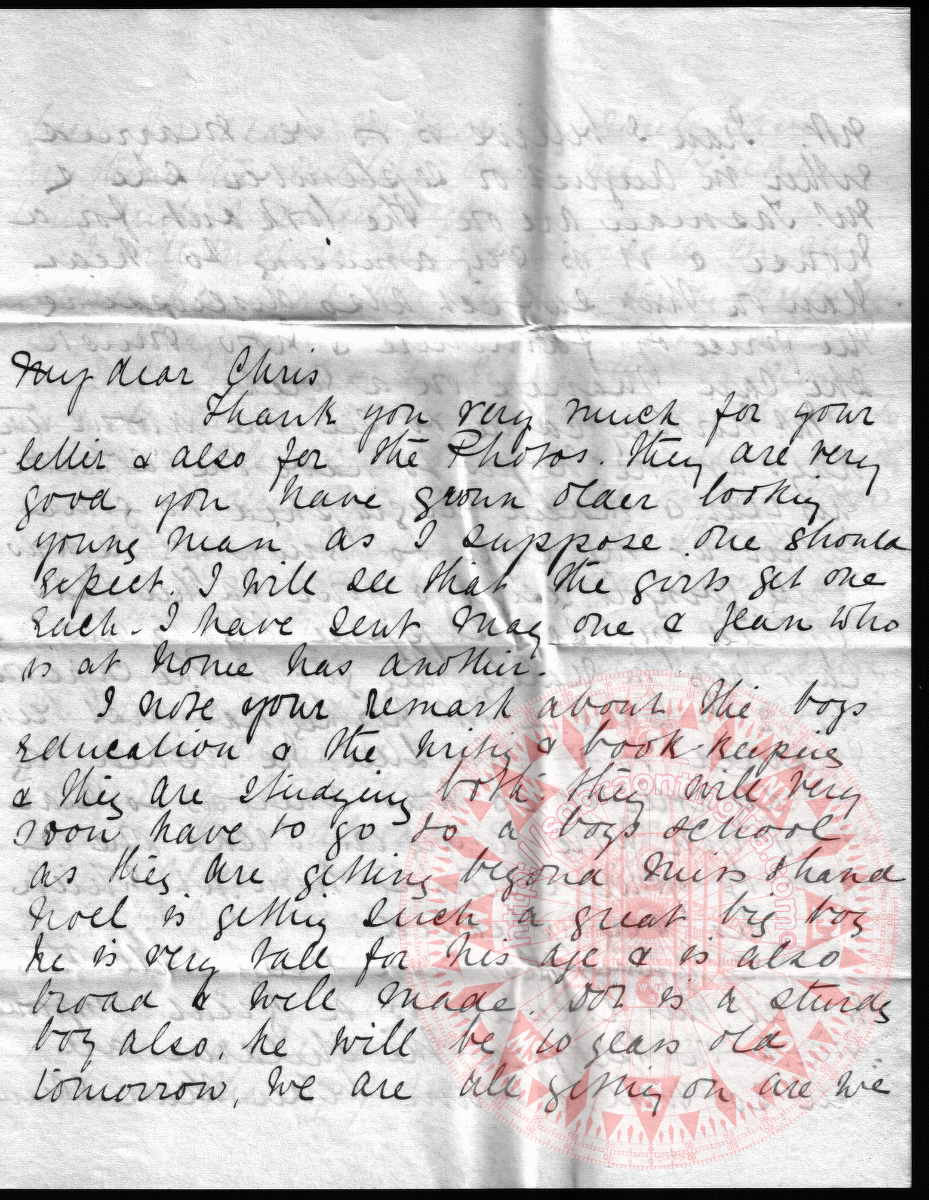 My dear Chris
Thank you very much for your
letter & also for the Photos. They are very
good, you have grown older looking
young man as I suppose one should
expect. I will see that the girls get one
each. I have sent May one & Jean who
is at home has another.
I note your remark about the boys
education & the writing & book-keeping
& they are studying both they will very
soon have to go to a boys school
as they are getting beyond Miss Shand
Noel is getting such a great big boy
he is very tall for his age & is also
broad & well made. is a sturdy
boy also, he will be 10 years old
tomorrow, we are all getting on are we